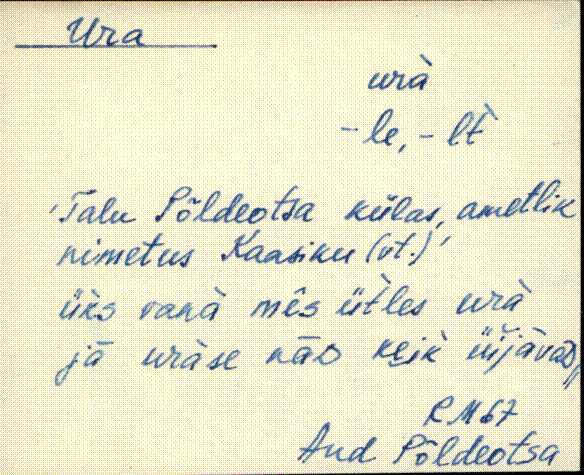 Ura
urà
-le, -lt̀
'Talu Põldeotsa külas, ametlik
nimetus Kaasiku (vt.)'
üks vanà mês üt̀les urà
jā uràse nāᴅ keik̀ üijàvaᴅ,,
RM67
And Põldeotsa